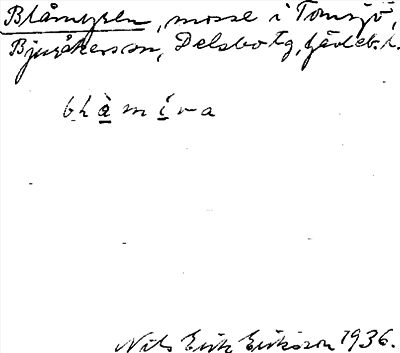 Blåmyren, mosse i Tomsjö,
Bjuråkers sn, Delsbo tg, Gävleb. l.
b h à m í r a
Nils Erik Eriksson 1936.